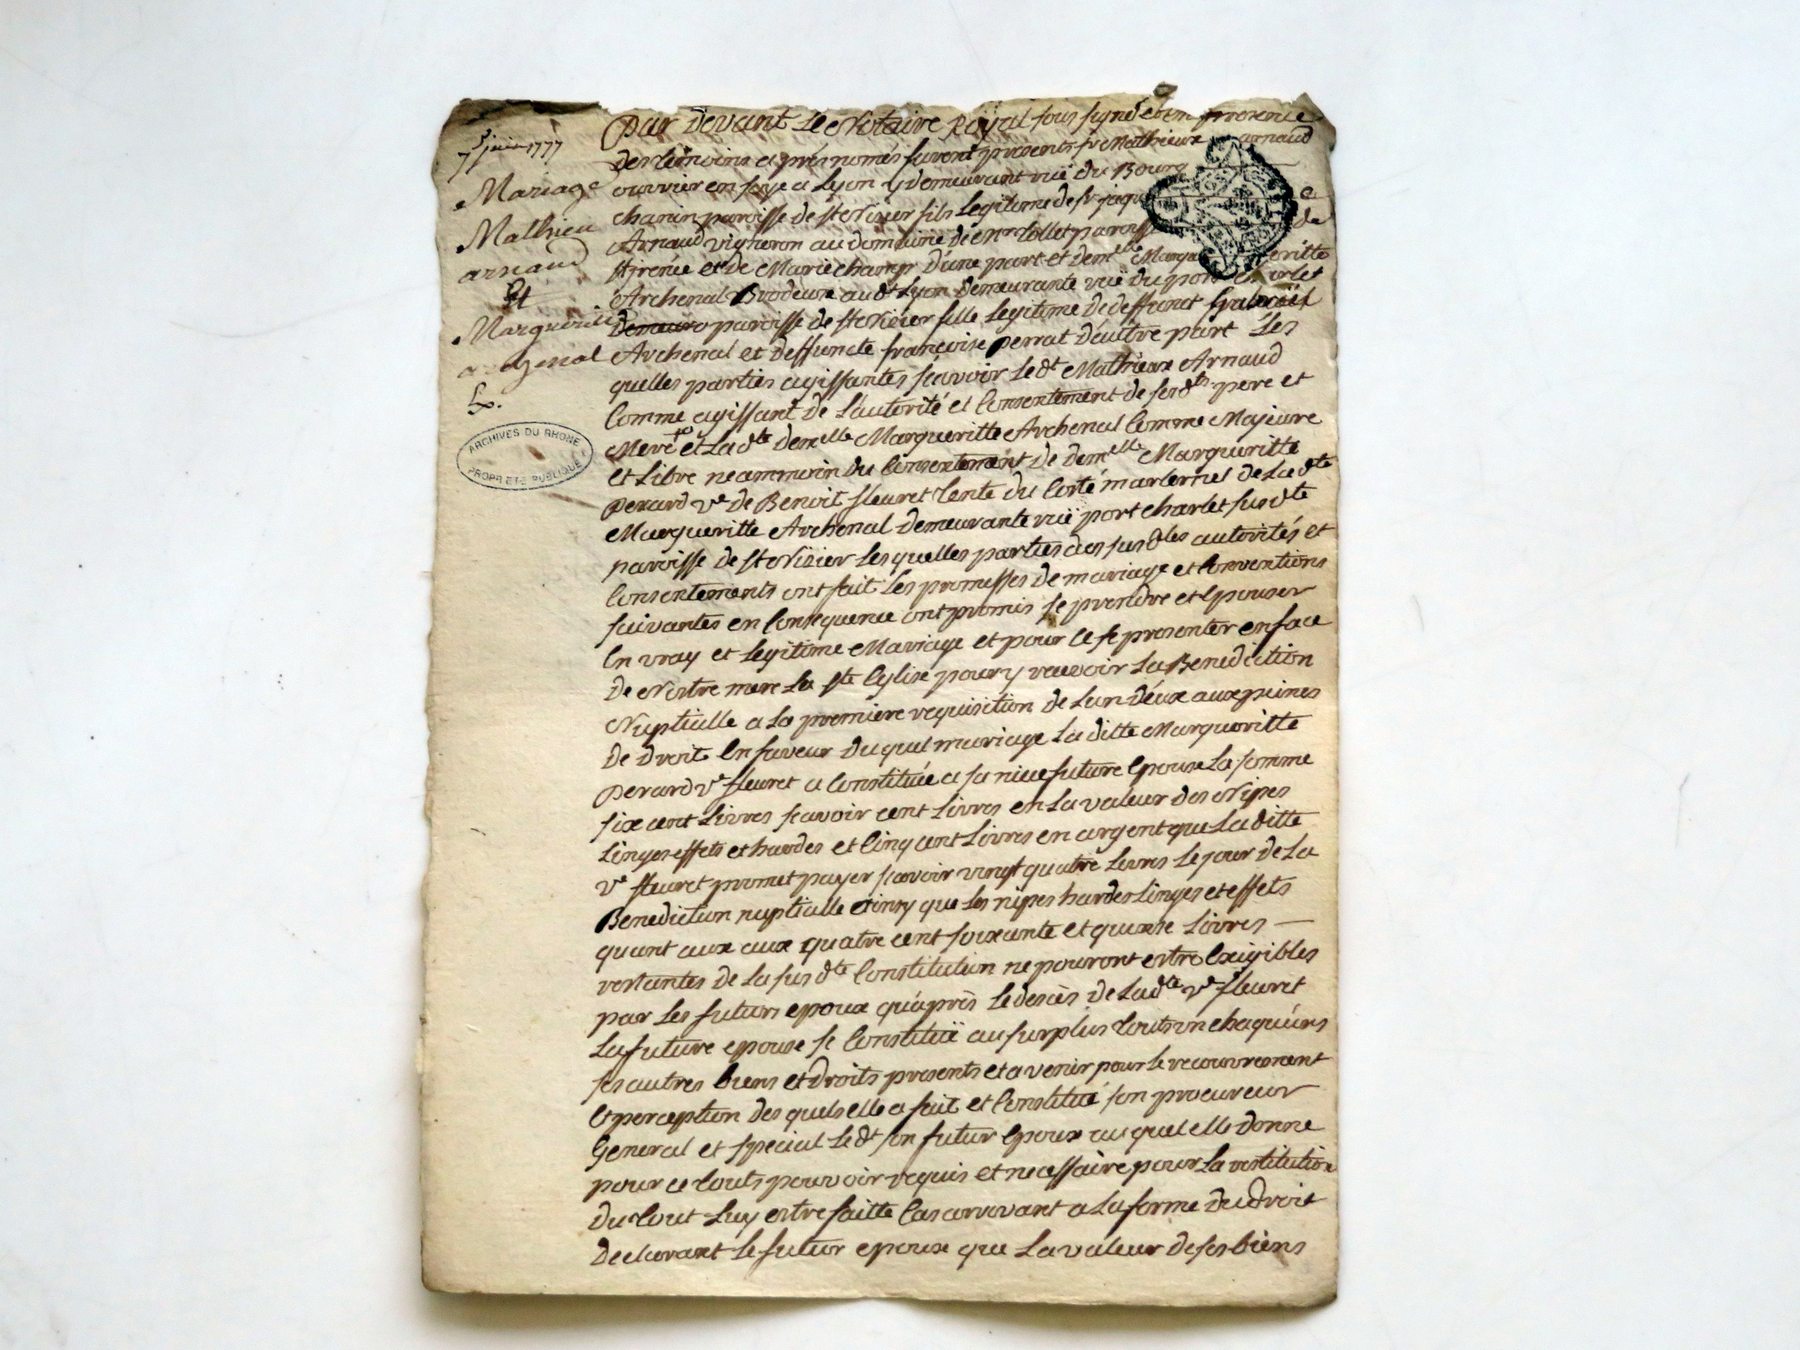 7e juin 1777
Mariage
Mathieu
arnaud
Et
Margueritte
archenal
Ex.
ARCHIVES DU RHONE
PROPRIETE PUBLIQUE
Par devant Le Notaire Royal sous signé et en presence
des temoins aprés només furent presents sr Mathieux arnaud
ouvrier en soye a Lyon y demeurant rüe du Bourg
chanin paroisse de st Nizier fils Legitime de sr jaque
Arnaud vigneron au domaine de Mr Tollet paroisse de
st jrenée et de Marie champ d'une part et demlle Margueritte
Archenal Brodeuse audt Lyon demeurante rüe du port charlet
demeura paroisse de st Nizier fille Legitime de deffunct Gabriël
Archenal et deffuncte françoise perrat d'autre part Les
quelles parties agissantes sçavoir Ledt Mathieux Arnaud
Comme agissant de L'autorité et Consentement de sesdts pere et
Mere et Ladte demelle Margueritte Archenal Comme Majeure
et Libre neammoin du Consentement de demelle Margueritte
perard ve de Benoit fleuret tante du Coté marternel de Ladte
Margueritte Archenal demeurante rüe port charlet susdte
paroisse de st Nizier Lesquelles parties des susdtes autorités et
Consentements ont fait Les promesses de mariage et Conventions
suivantes en Consequence ont promis se prendre et Epouser
En vray et Legitime Mariage et pour ce se presenter en face
de Nostre mere La ste Eglise pour y recevoir La Benediction
Nuptialle a La premiere requisition de Lun d'eux aux peines
de droit En faveur du quel mariage La ditte Margueritte
perard ve fleuret a Constituée a sa niece future Epouse La somme
six cent Livres sçavoir cent Livres en La valeur des Nipes
Linges effets et hardes et Cinq cent Livres en argent que La ditte
ve fleuret promet payer sçavoir vingt quatre Livres Le jour de La
Benediction nuptialle ainsy que Les nipes hardes Linges et effets
quant aux aux quatre cent soixante et quinse Livres —
restantes de La susdte Constitution ne pouront estre Exigibles
par Les futurs epoux qu'après Le decès de Ladte ve fleuret
La future epouse se Constituë au surplus touts un chaqu'uns
ses autres biens et droits presents et a venir pour Le recouvrement
Et perception des quels elle a fait et Constitué son procureur
General et special Ledt son futur Epoux au quel elle donne
pour ce touts pouvoir requis et necessaire pour La restitution
du tout Luy estre faitte Cas arrivant a La forme du droit
declarant Le futur epoux que La valeur de ses biens